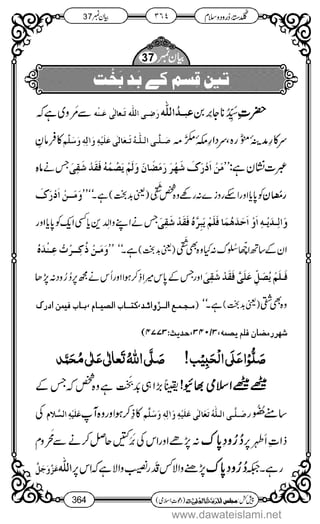 بیان نمبر 37
٣٦٤
گلدستۂ درود و سلام
بیان نمبر 37
تین قسم کے بَد بَخْت
حضرتِ سیِّدُنا جابر بن عبدُ اللہ رَضِی اللّٰہ تَعَالٰی عَنْہ سے مروی ہے کہ
سرکارِ مدینۂ منوّرہ، سردارِ مکّۂ مکرّمہ صَلَّی اللّٰہ تَعَالٰی عَلَیْہِ وَاٰلِہٖ وَسَلَّم کا فرمانِ
عبرت نشان ہے: ’’مَنْ اَدْرَکَ شَھْرَ رَمَضَانَ وَلَمْ یَصُمْہُ فَقَدْ شَقِیَ جس نے ماہِ
رمضان کو پایا اور اسکے روزے نہ رکھے وہ شخص شقی (یعنی بدبخت) ہے۔‘‘، ’’وَمَنْ اَدْرَکَ
وَالِدَیْہِ اَوْ اَحَدَھُمَا فَلَمْ یَبِرَّہُ فَقَدْ شَقِیَ جس نے اپنے والدین یا کسی ایک کو پایا اور
ان کے ساتھ اچھا سلوک نہ کیا وہ بھی شقی (یعنی بدبخت) ہے۔‘‘، ’’وَمَنْ ذُکِرْتُ عِنْدَہُ
فَلَمْ یُصَلِّ عَلَیَّ فَقَدْ شَقِیَ اور جس کے پاس میرا ذکر ہوا اور اُس نے مجھ پر دُرُود نہ پڑھا
وہ بھی شقی (یعنی بدبخت) ہے۔‘‘ (مجمع الزوائد، کتاب الصیام، باب فیمن ادرک
شھر رمضان فلم یصمہ، ٣/٣٤٠، حدیث: ٤٧٧٣)
صَلُّوْا عَلَی الْحَبِیْب! صَلَّی اللّٰہُ تَعَالٰی عَلٰی مُحَمَّد
میٹھے میٹھے اسلامی بھائیو! یقیناً بڑا ہی بَدبَخْت ہے وہ شخص کہ جس کے
سامنے حُضُور صَلَّی اللّٰہ تَعَالٰی عَلَیْہِ وَاٰلِہٖ وَسَلَّم کا ذِکر ہو اور وہ آپ عَلَیْہِ السَّلَام کی
ذاتِ اَطہر پر دُرُودِ پاک نہ پڑھے اور اس کی بَرَکتیں حاصل کرنے سے محروم
رہے۔ جبکہ دُرُودِ پاک پڑھنے والا کس قدر خوش نصیب ہے کہ اس پر اللہ عَزَّوَجَلَّ
364
پیش کش: مجلس المدینۃ العلمیۃ (دعوتِ اسلامی)
www.dawateislami.net